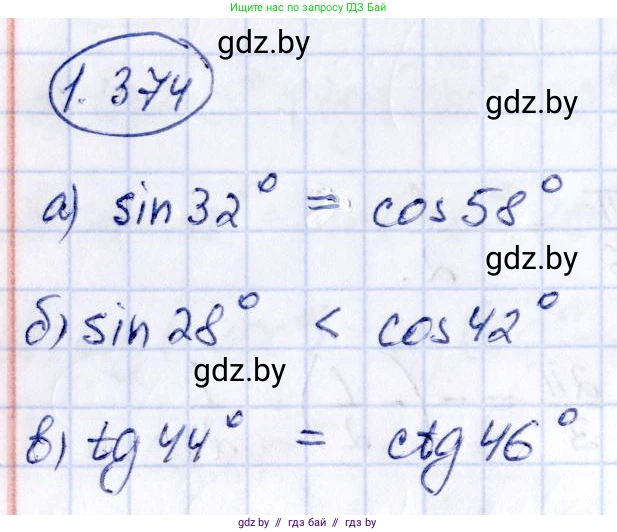 Нашли ответ на свой вопрос? Нашли по запросу ГДЗ Бай
gdz.by
1.374
gdz.by
а) sin 32° = cos 58°
gdz.by
б) sin 28° < cos 42°
gdz.by
в) tg 44° = ctg 46°
gdz.by // гдз бай // гдз by